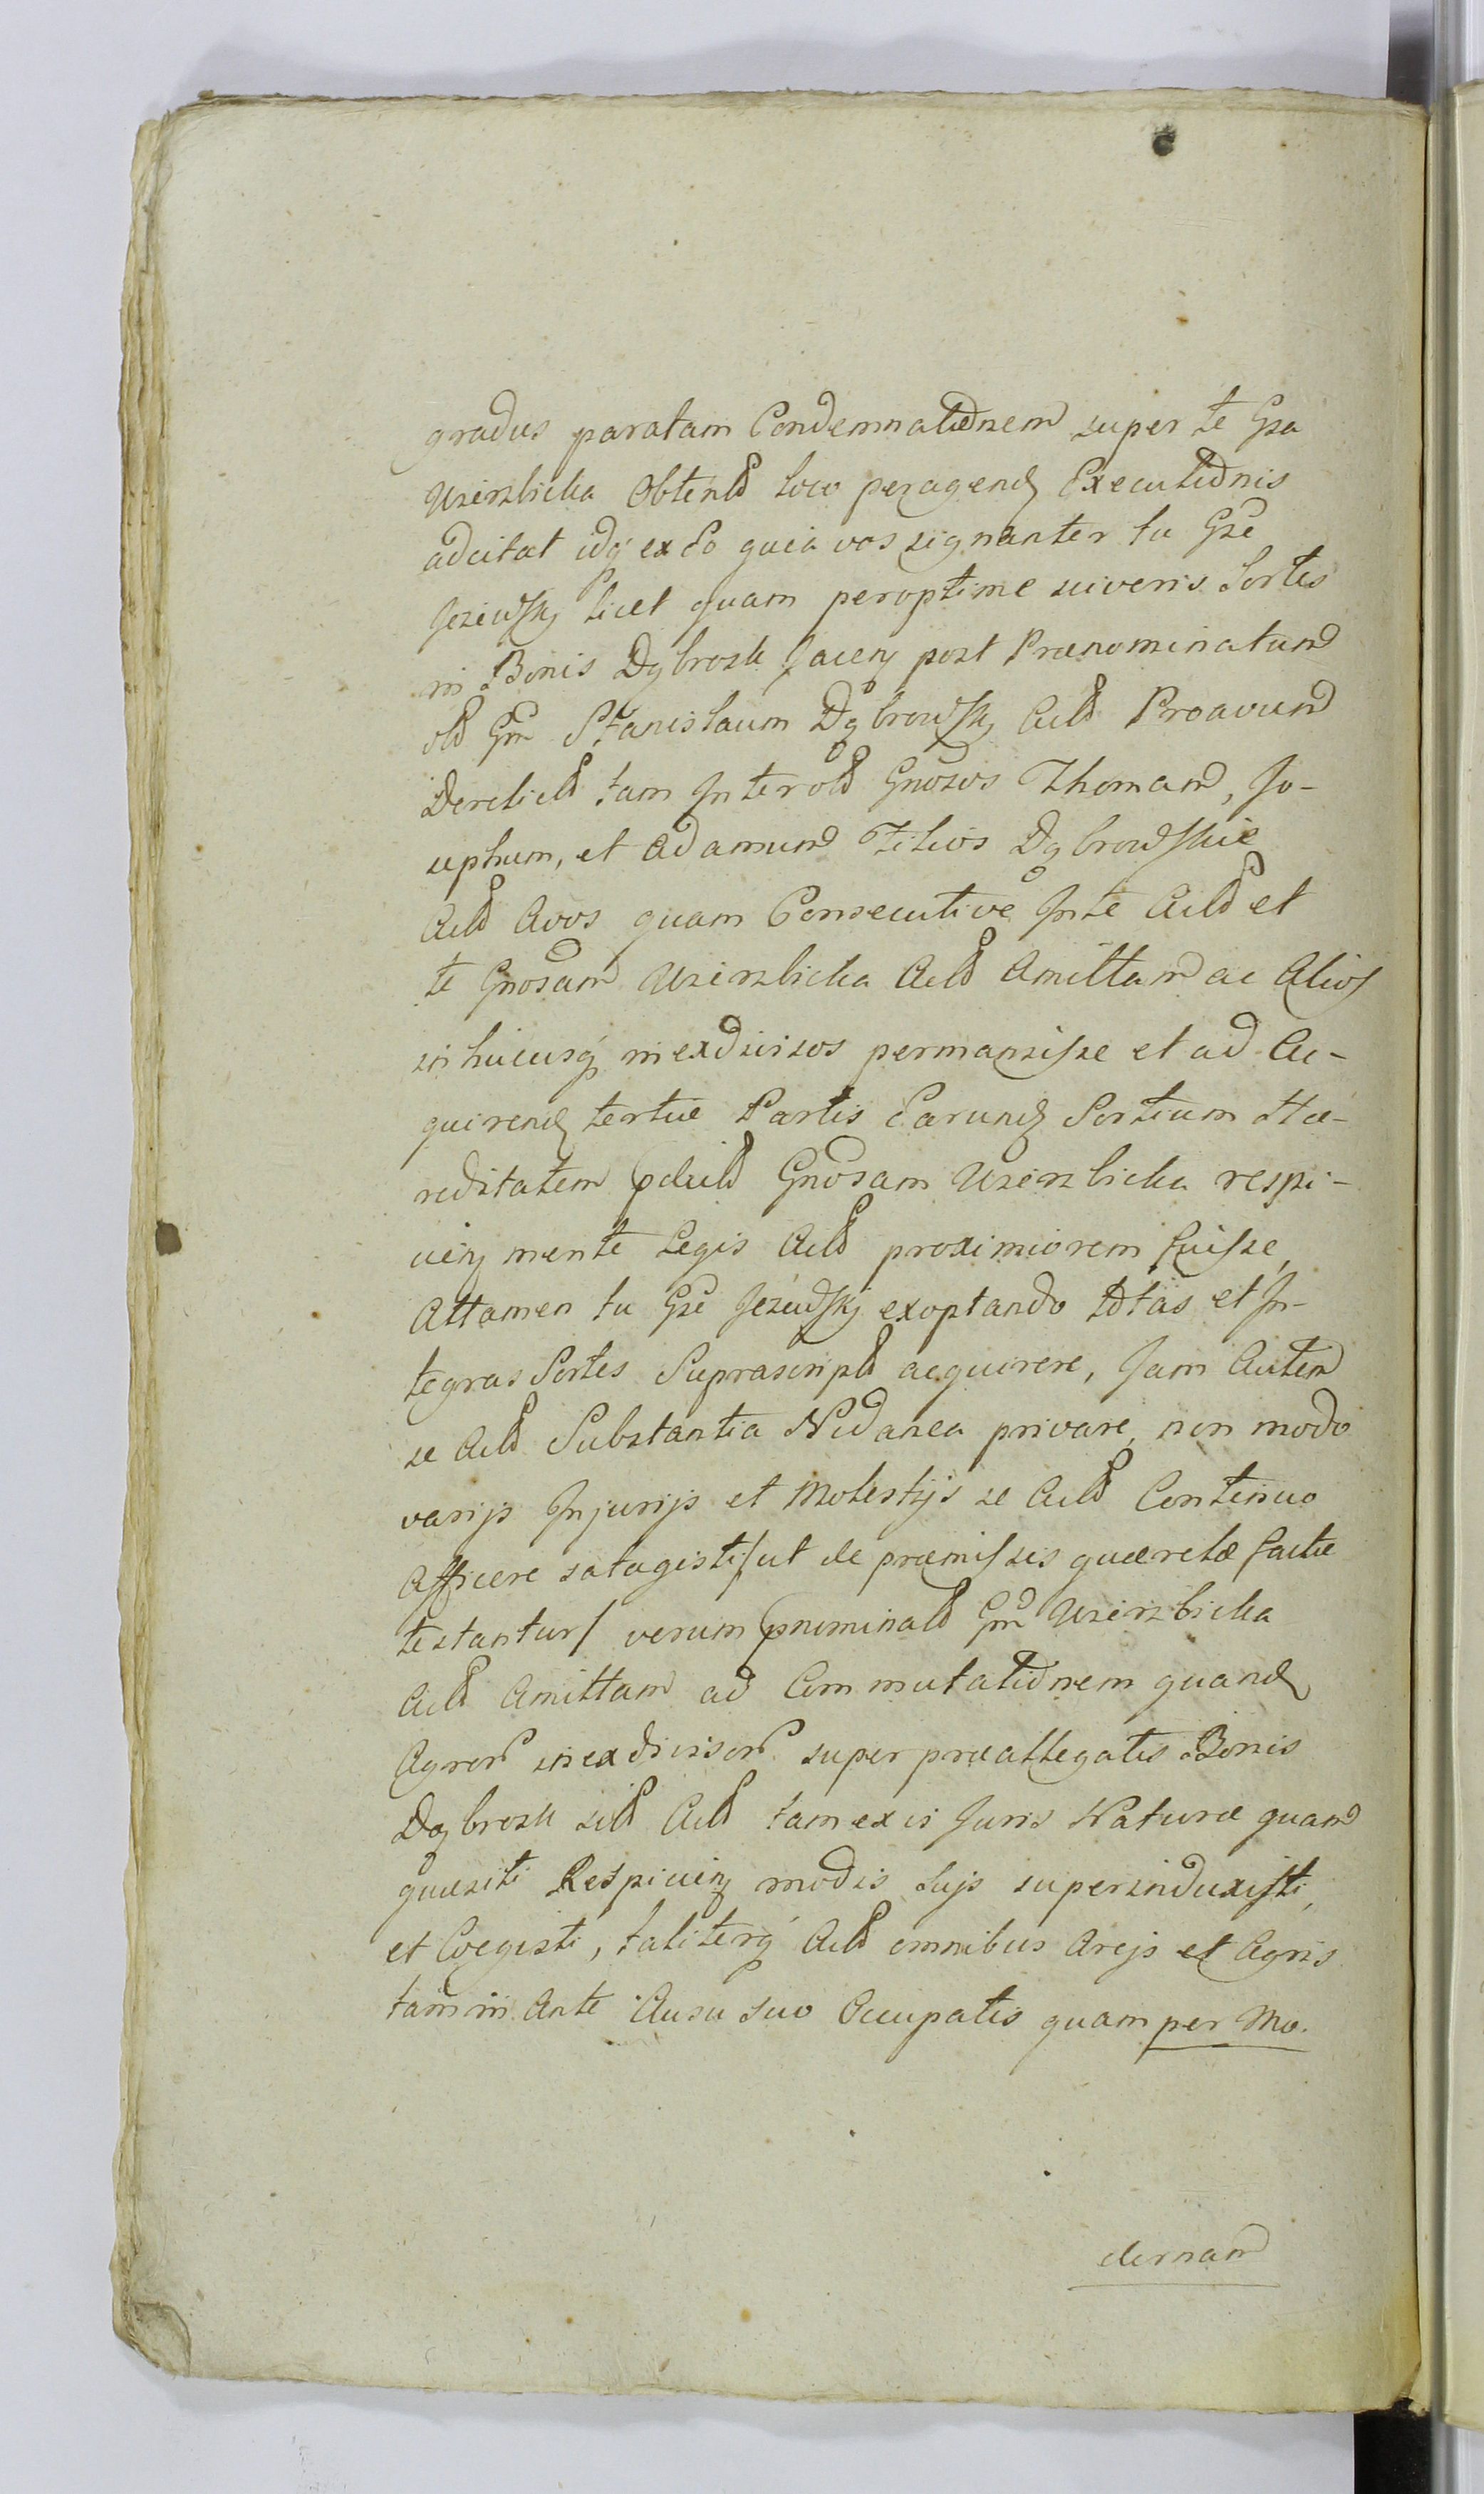 gradus paratam Condemnationem super te Gsa
Wierzbicka Obtentd loco peragend Executionis
adcitat idq ex Eo quia vos signanter tu Gse
Jeziewskj licet quam peroptime sciveris Sortes
in Bonis Dąbrosk Jacen post Prænominatum
old Gm Stanislaum Dąbrowskj Actd Proavum
Derelictd tam Inter old Gnosos Thomam, Jo-
sephum, et Adamum Filios Dąbrowskie
Actd Avos quam Consecutive Inte Actd et
te Gnosam Wierzbicka Actd Amittam ac Alios
in hucusq inexdivisos permansisse et ad Ac-
quirend tertiæ Partis Earund Sortium Hæ-
reditatem Gnosam Wierzbicka respi-
cien mente Legis Actd proximiorem fuisse,
Attamen tu Gse Jeziewskj exoptando totas et In-
tegras Sortes Suprascriptd acquirere, Jam Autem
se Actd Substantia Nidanea privare, non modo
varijs Injurijs et Molestijs se Actd Continuo
Afficere satagisti/ut de præmissis quærelæ factæ
testantur/ verum pnominatd Gm Wierzbicka
Actd Amittam ad Commutationem quand
Agror inexdivisor super præallegatis Bonis
Dąbrosk sibd Actd tam ex vi Juris Naturæ quam
quæsiti Respicien modis Sujs superinduxisti,
et Coegisti, taliterq Actd omnibus Arejs et Agris
tam in Ante Ausu suo Occupatis quam per Mo.
dernam